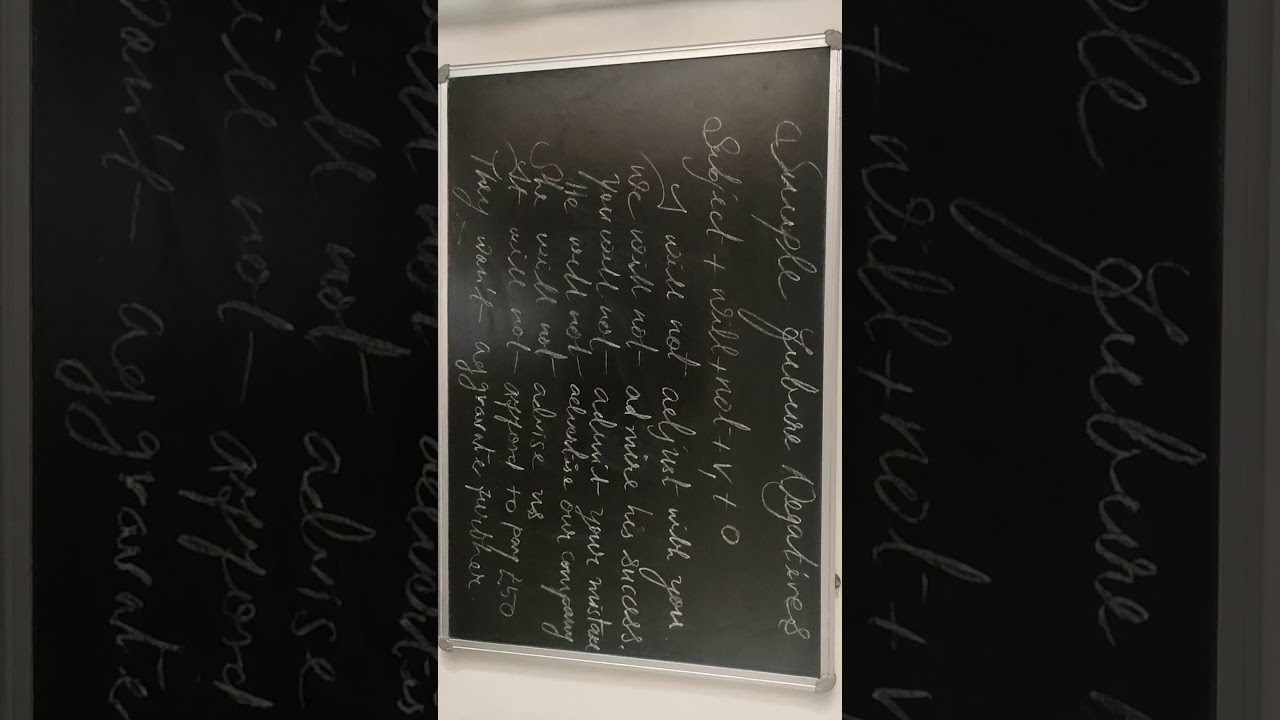 Simple Future Negatives
Subject + will + not + V₁ + O
I will not adjust with you.
we will not admire his success.
You will not admit your mistake
He will not advertise our company
She will not advise us
It will not afford to pay ₹50
They want aggravate further